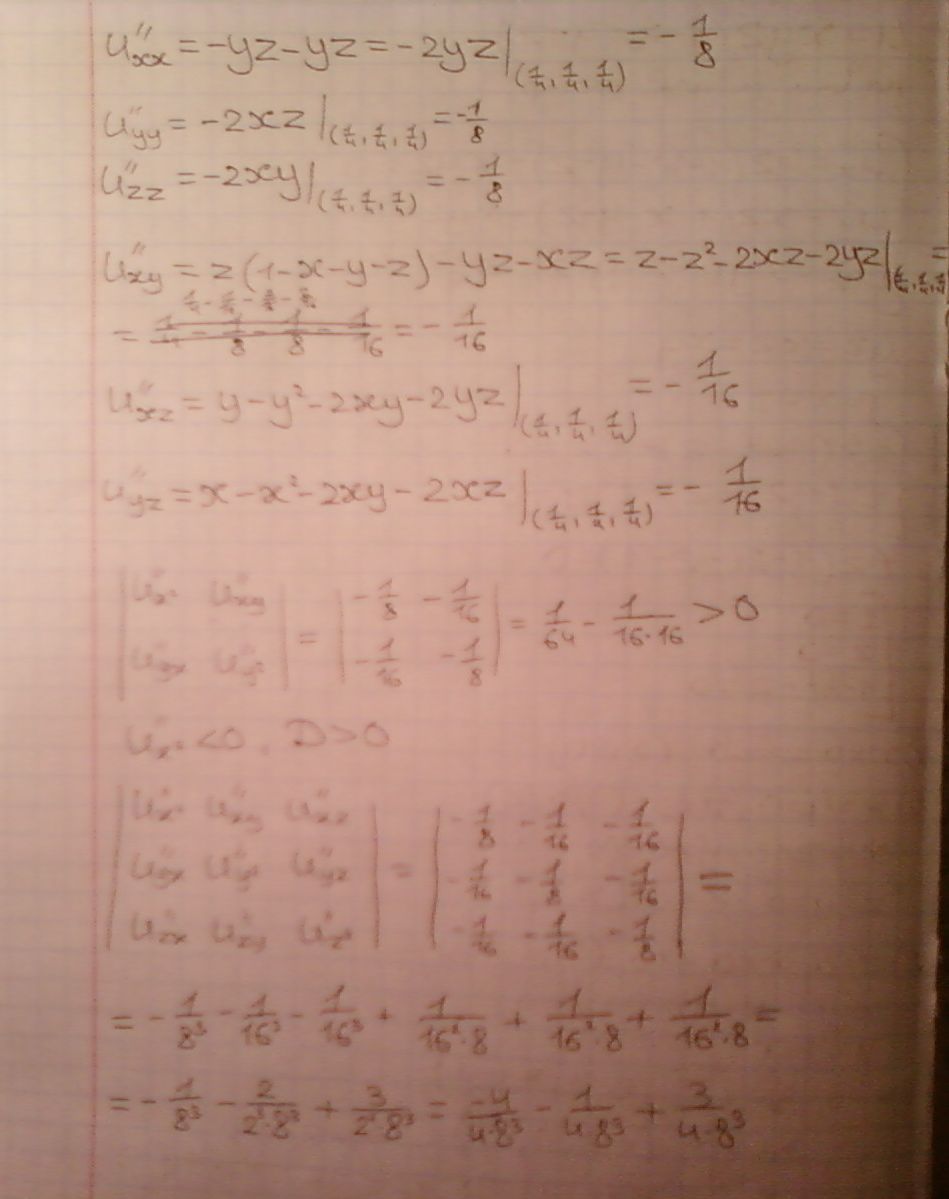 u''xx = -yz-yz = -2yz|(1/4, 1/4, 1/4) = -1/8
u''yy = -2xz|(1/4, 1/4, 1/4) = -1/8
u''zz = -2xy|(1/4, 1/4, 1/4) = -1/8
u''xy = z(1-x-y-z)-yz-xz = z-z²-2xz-2yz|(1/4, 1/4, 1/4) =
= = -1/16
u''xz = y-y²-2xy-2yz|(1/4, 1/4, 1/4) = -1/16
u''yz = x-x²-2xy-2xz|(1/4, 1/4, 1/4) = -1/16
|u''x² u''xy| = |-1/8 -1/16| = 1/64 - 1/(16·16) > 0
|u''yx u''y²| |-1/16 -1/8|
u''x² <0, D>0
|u''x² u''xy u''xz| |-1/8 -1/16 -1/16|
|u''yx u''y² u''yz| = |-1/16 -1/8 -1/16| =
|u''zx u''zy u''z²| |-1/16 -1/16 -1/8|
= -1/8³ - 1/16³ - 1/16³ + 1/(16²·8) + 1/(16²·8) + 1/(16²·8) =
= -1/8³ - 2/(2³·8³) + 3/(2²·8³) = -4/(4·8³) - 1/(4·8³) + 3/(4·8³)